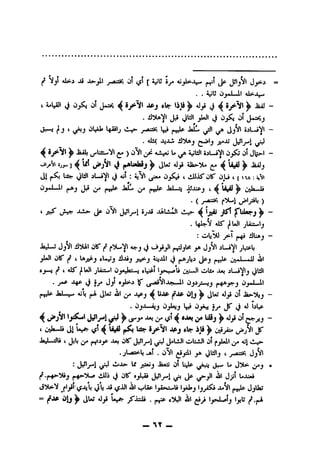 = دخول الأوائل على أنهم سيدخلونه مرة ثانية [ أي أن بختنصر الموحد قد دخله أولاً ثم
سيدخله المسلمون ثانية . .
- لفظ ﴿ الآخرة ﴾ في قوله ﴿ فإذا جاء وعد الآخرة ﴾ يحتمل أن يكون في القيامة ،
ويحتمل أن يكون في العلو الثاني قبل الإهلاك .
- الإفسادة الأولى هي التي سُلّط عليهم فيها بختنصر حيث رافقها طغيان وبغي ، ولم يسبق
لبني إسرائيل تدمير واضح شديد
- احتمال أن تكون الإفسادة الثانية هي ما نعيشه نحن الآن ( مع الاستئناس بلفظ ﴿ الآخرة ﴾
ولفظ ﴿ لفيفاً ﴾ مع ملاحظة قوله تعالى ﴿ وقطعناهم في الأرض أمماً ﴾ [ سورة الأعراف
الآية : ١٦٨ ] ، فإن كان كذلك ، فيكون معنى الآية : أنه في الإفساد الثاني جئنا بكم إلى
فلسطين ﴿ لفيفاً ﴾ ، وعندئذٍ يتسلط عليهم من سُلّط عليهم من قبل وهم المسلمون
( بافتراض إسلام بختنصر ) .
- ﴿ وجعلناكم أكثر نفيراً ﴾ حيث المُشاهَد قدرة إسرائيل الآن على حشد جيش كبير ،
واستنفار العالم كله لأجلها .
- وهناك فهم آخر للآيات :
باعتبار الإفساد الأول هو محاولتهم الوقوف في وجه الإسلام ثم كان الهلاك الأول تسليط
الله للمسلمين عليهم وعلى ديارهم في المدينة وخيبر وفدك وتيماء وغيرها ، ثم كان العلو
الثاني والإفساد بعد مئات السنين فأصبحوا أغنياء يستطيعون استنفار العالم كله ، ثم يسوء
المسلمون وجوههم ويستردون المسجد الأقصى كما دخلوه أول مرة في عهد عمر .
- ويلاحظ أن قوله تعالى ﴿ وإن عدتم عدنا ﴾ وعيد من الله تعالى لهم بأنه سيسلط عليهم
عباداً له في كل مرة يبغون فيها ويعلون ويفسدون .
- ويرجح أن قوله ﴿ وقلنا من بعده ﴾ أي من بعد موسى ﴿ لبني إسرائيل اسكنوا الأرض ﴾
كل الأرض متفرقين ﴿ فإذا جاء وعد الآخرة جئنا بكم لفيفاً ﴾ أي جميعاً إلى فلسطين ،
حيث إنه من المعلوم أن الشتات الشامل لبني إسرائيل كان بعد عودتهم من بابل ، فالتسليط
الأول بختنصر ، والثاني هو المتوقع الآن . أهـ باختصار .
• ومن خلال ما سبق ينبغي علينا أن نتعظ ونعتبر مما حدث لبني إسرائيل :
فعندما أنزل الله الوحي على بني إسرائيل فقبلوه كان في ذلك صلاحهم وفلاحهم. ثم
تطاول عليهم الأمد فكفروا وطغوا فاستحقوا عقاب الله الذي قد يأتي بأيدي أقوام لا خلاق
لهم. ثم تابوا وأصلحوا فرفع الله البلاء عنهم . فلنتذكر جميعاً قوله تعالى ﴿ وإن عدتم =
- ٦٢ -